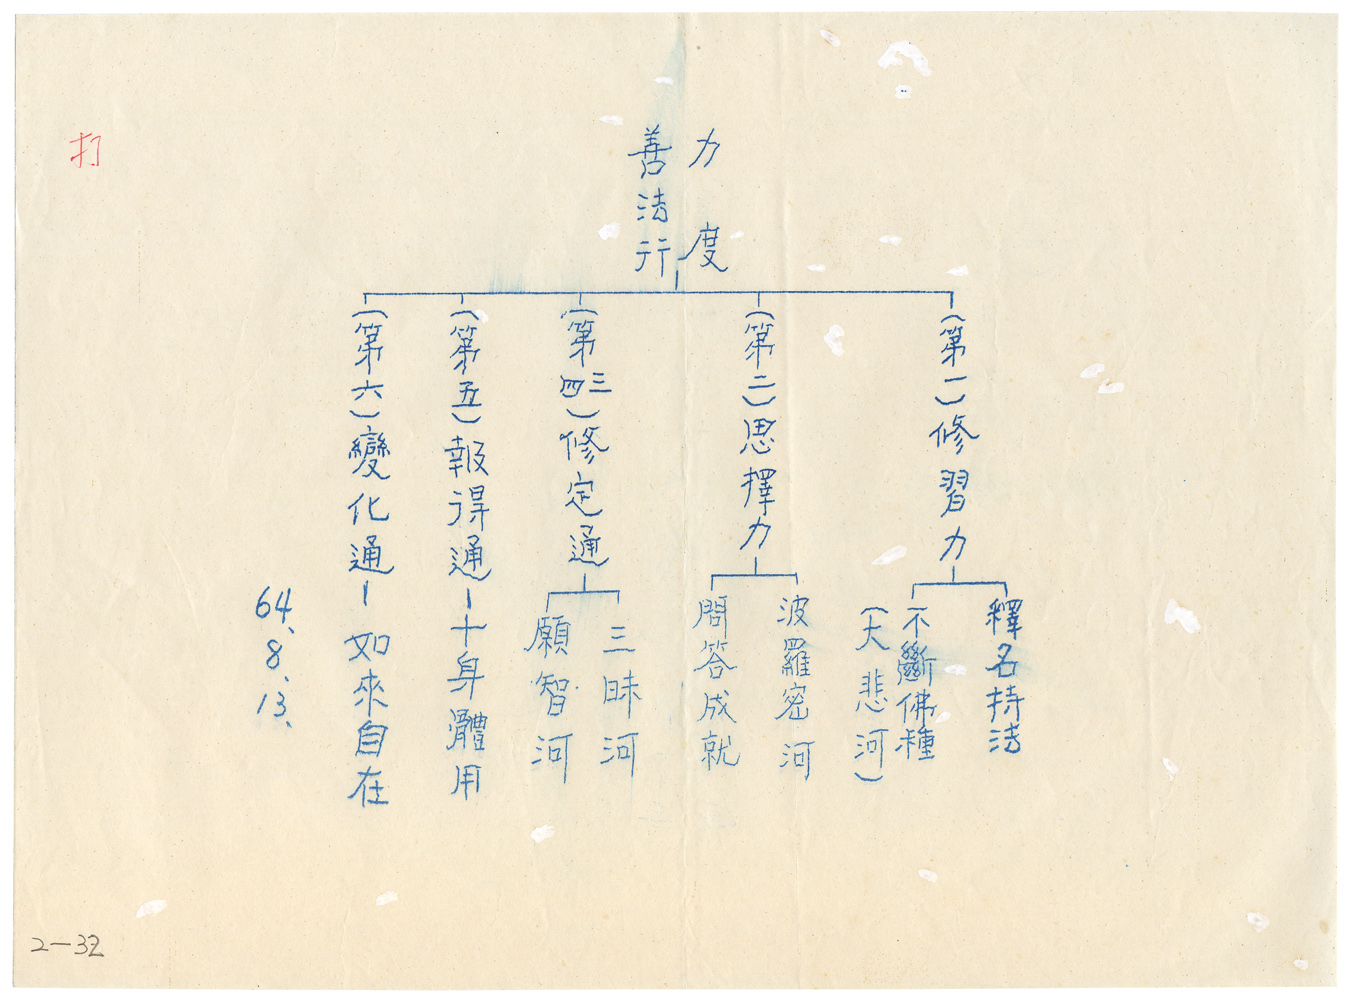 打
力度
善法行
(第一)修習力
釋名持法
不斷佛種
(大悲河)
(第二)思擇力
波羅密河
問答成就
(第三四)修定通
三昧河
願智河
(第五)報得通—十身體用
(第六)變化通—如來自在
64、8、13、
2-32